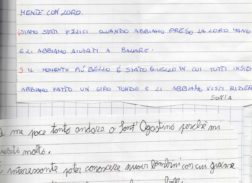 MENTE CON LORO.
SIAMO STATI FELICI QUANDO ABBIAMO PRESO LA LORO MANO
E LI ABBIAMO AIUTATI A BALLARE.
IL MOMENTO PIÙ BELLO È STATO QUELLO IN CUI TUTTI INSIEME
ABBIAMO FATTO UN GIRO TONDO E LI ABBIAMO VISTI RIDERE
SOFIA
me piace tanto andare a Sant'Agostino perché mi
molto.
conoscere nuovi bambini con cui